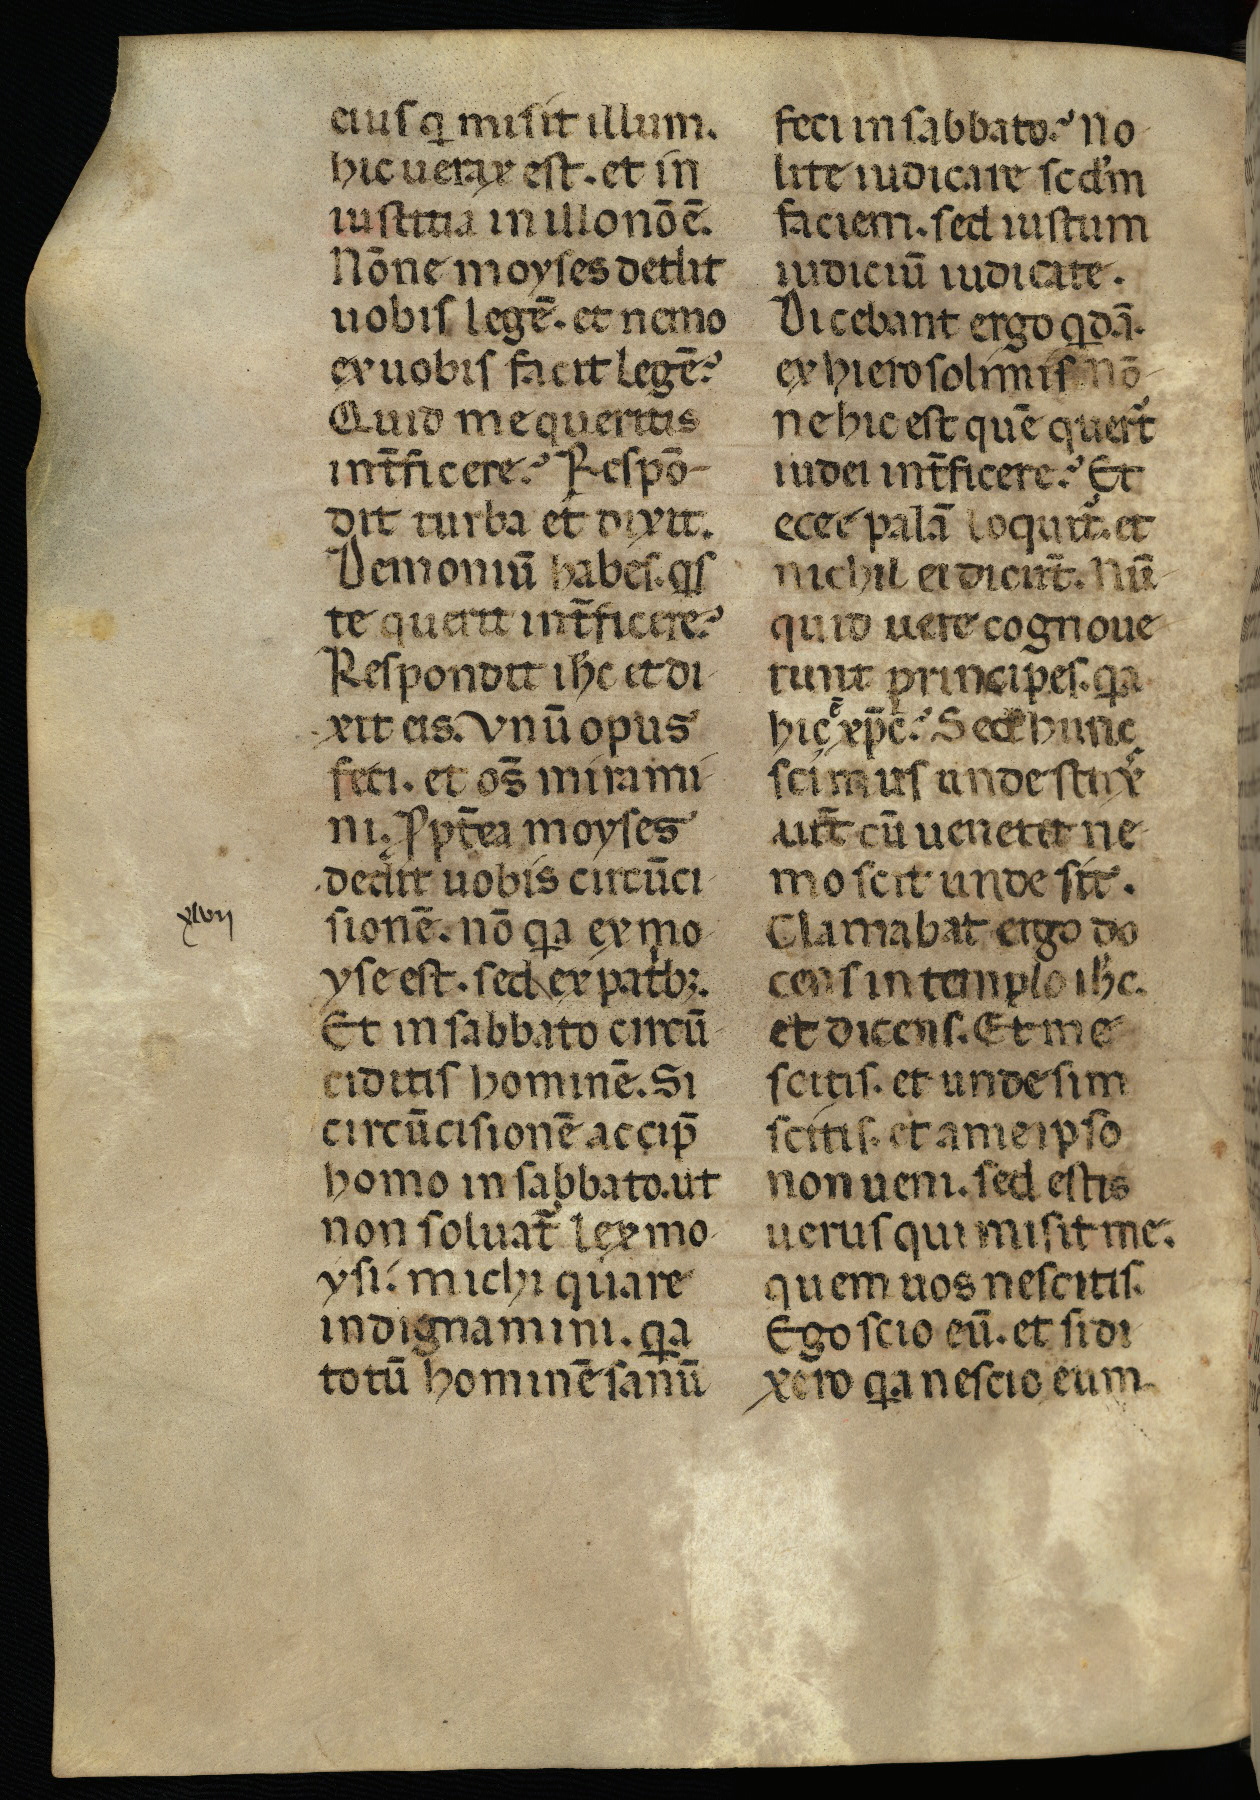 eius q misit illum.
hic uerax est. et in
iustitia in illo nō ē.
Nōne moyses dedit
uobis legē. et nemo
ex uobis facit legē?
Quid me queritis
int̄ficere? Respō-
dit turba et dixit.
Demoniū habes. qs
te querit int̄ficere?
Respondit ihc et di
xit eis. Vnū opus
feci. et os̄ mirami
ni. Ppt̄ea moyses
dedit uobis circūci
xlvii
sionē. nō qa ex mo
yse est. sed ex patⁱbꝫ.
Et in sabbato circū
ciditis hominē. Si
circūcisionē accip̄
homo in sabbato. ut
non soluat̄ lex mo
ysi. michi quare
indignamini. qa
totū hominē sanū
feci in sabbato? No
lite iudicare scdm̄
faciem. sed iustum
iudiciū iudicate.
Dicebant ergo qdā.
ex hierosolimis Nō
ne hic est quē quert̄
iudei int̄ficere? Et
ecce palā loquit̄. et
nichil ei dicūt. Nū
quid uere cognoue
runt principes. qa
hic ē xpc̄? Sed hunc
scimus unde sit. xp̄c
aut̄ cū uenerit ne
mo scit unde sit.
Clamabat ergo do
cens in templo ihc.
et dicens. Et me
scitis. et unde sim
scitis. et a me ipso
non ueni. sed est is
uerus qui misit me.
quem uos nescitis.
Ego scio eū. et si di
xero qa nescio eum